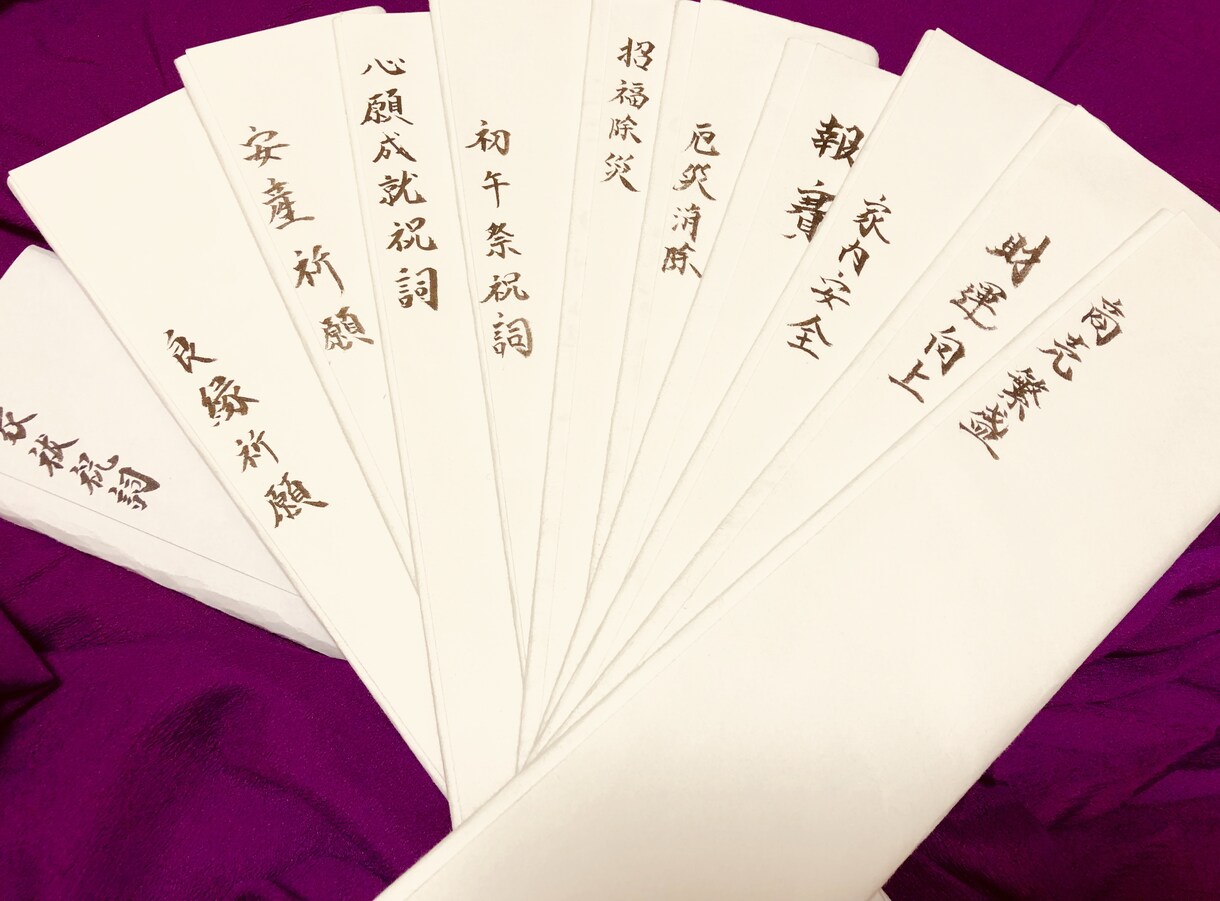 商売繁盛
財運向上
家内安全
報賽
厄災消除
招福除災
初午祭祝詞
心願成就祝詞
安産祈願
良縁祈願
祓祝詞